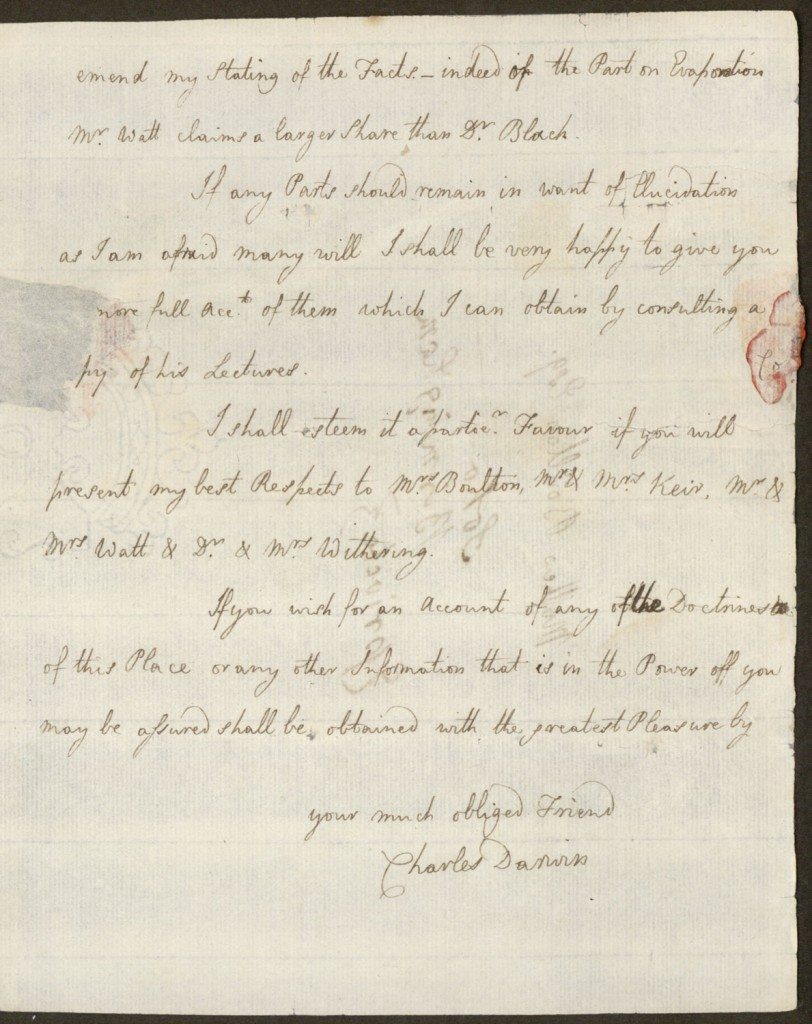 emend my Stating of the Facts – indeed of the Part on Evaporation
Mr. Watt claims a larger Share than Dr. Black.
If any Parts should remain in want of Elucidation
as I am afraid many will I shall be very happy to give you
more full Acct. of them which I can obtain by consulting a
Co
py of his Lectures.
I shall esteem it a particr. Favour if you will
present my best Respects to Mrs Boulton, Mr & Mrs Keir, Mr. &
Mrs Watt & Dr. & Mrs Withering.
If you wish for an Account of any of the Doctrines
of this Place or any other Information that is in the Power off, you
may be assured shall be, obtained with the greatest Pleasure by
your much obliged Friend
Charles Darwin